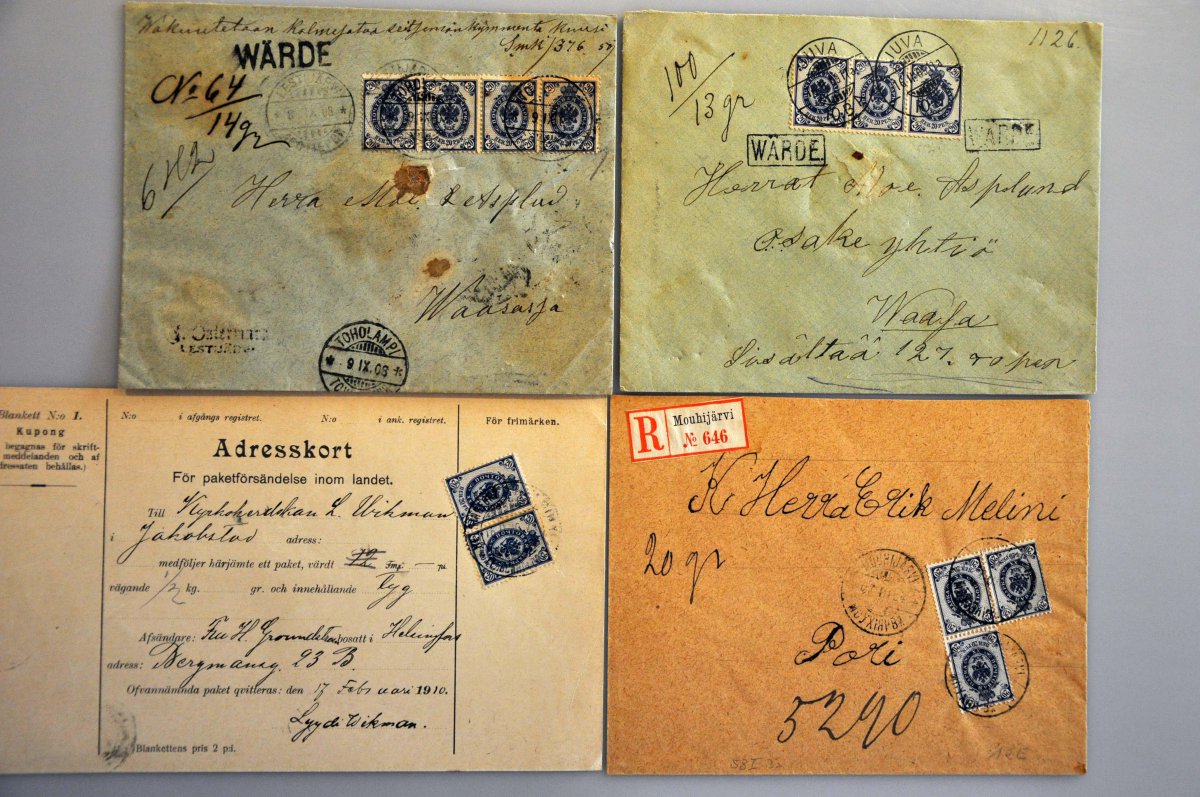 Wakuutetaan kolmesataa seitsemänkymmentä kuusi
Smk/376.
WÄRDE
No 64
14 gr
Herra
Waasassa
TOHOLAMPI
9 IX.08
100/13 gr
1126.
JUVA
WÄRDE
WÄRDE
Herrat Asplund
Osake yhtiö
Waasa
Sisältää 127.
Blankett N:o 1.
Kupong
begagnas för skrift-
meddelanden och af
dressaten behållas.)
N:o i afgångs registret. N:o i ank. registret.
För frimärken.
Adresskort
För paketförsändelse inom landet.
Till L. Wikman
i Jakobstad adress:
medföljer härjämte ett paket, värdt Fmf. — pi.
vägande 1/2 kg. gr. och innehållande tyg
Afsändare: Fru H. bosatt i Helsingfors
adress: Bergmansg. 23 B.
Ofvannämnda paket qvitteras: den 17 Februari 1910.
Lyydi Wikman.
Blankettens pris 2 p:i.
R Mouhijärvi
№ 646
K Herra Erik Melini
20 gr
MOUHIJÄRVI
Pori
5290